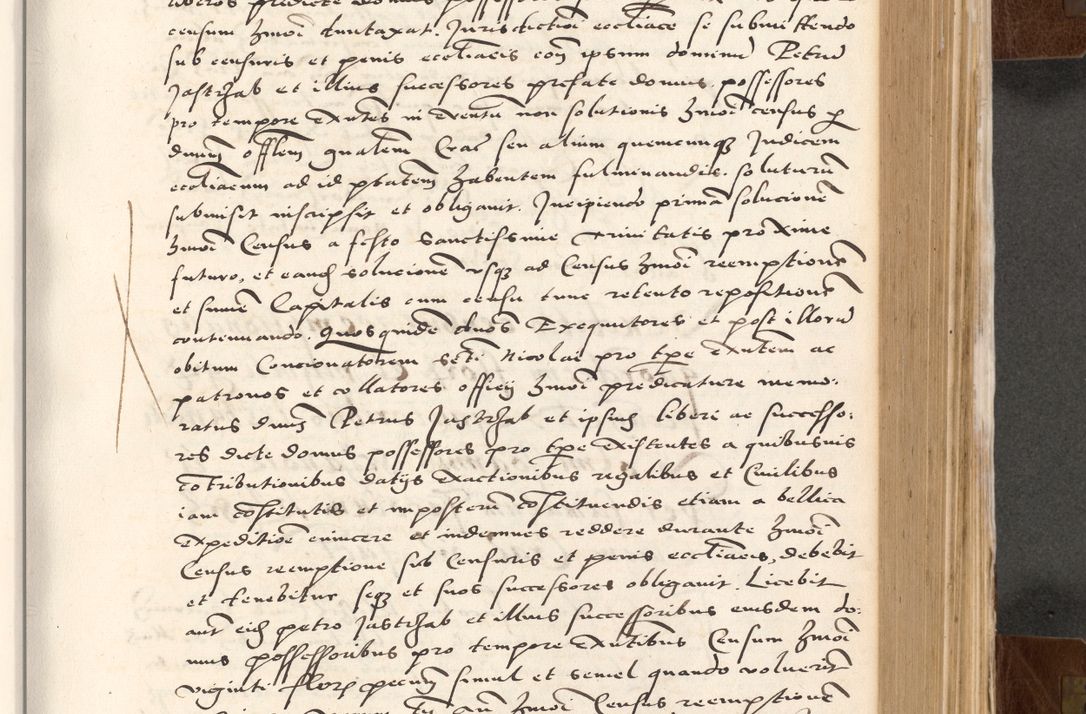 censum hmōi duntaxat. Jurisdictiōi ecclīace se submittendo
sub censuris et penis ecclīacis eoꝫ ipsum dominū Petrū
Jastrzab et illius successores prefate domus possessores
pro tempore exn̄tes in eventū non solutionis hmōi census ꝑ
dnūm offlem gnalem Crac̄ seu alium quemcunqꝫ Judicem
ecclīacum ad id ptatem habentem fulminandis. soluturū
submisit inscripsit et obligavit. Incipiendo primā solucionē
hmōi Census a festo Sanctissime Trinitatis proxime
futuro, et eandē solucionē usqꝫ ad Census hmōi reemptionē
et sumē Capitalis cum censu tunc retento repositionē
continuando. Quosquidē duos Exequutores et post illorū
obitum Concionatorem scti Nicolai pro tpe exn̄tem ac
patronos et collatores officij hmōi predicature memo:
ratus dnūs Petrus Jastrzab et ipsius liberi ac successo:
res dicte domus possessores pro tpe existentes a quibusvis
cōtributionibus datijs exactionibus regalibus et Civilibus
iam cōstitutis et imposterū cōstituendis etiam a bellica
expeditiōe evincere et indemnes reddere durante hmōi
Census reemptione sub Censuris et penis ecclīacis, debebit
et tenebitur seqꝫ et suos successores obligavit. Licebit
aut̄ eidē petro Jastrzab et illius successoribus eiusdem do:
mus possessoribus pro tempore exn̄tibus Censum hmōi
viginti florꝫ pecunꝫ simul et semel quando voluerit
hmōi Census reemptionē